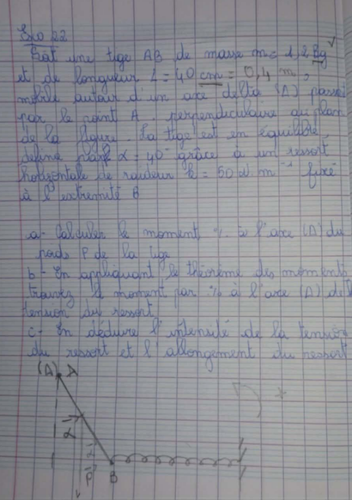 Exo 22
Soit une tige AB de masse m = 1,2 kg
et de longueur L = 40 cm = 0,4 m,
mobile autour d'un axe delta (Δ) passe
par le point A, perpendiculaire au plan
de la figure. La tige est en équilibre
définie par α = 40° grâce à un ressort
horizontale de raideur k = 50 N.m⁻¹ fixé
à l'extremité B
a- Calculer le moment % à l'axe (Δ) du
poids P de la tige
b- En appliquant le théorème des moments
trouvez le moment par % à l'axe (Δ) de la
tension du ressort
c- En déduire l'intensité de la tension
du ressort et l'allongement du ressort
(Δ) A
α
P
B
+